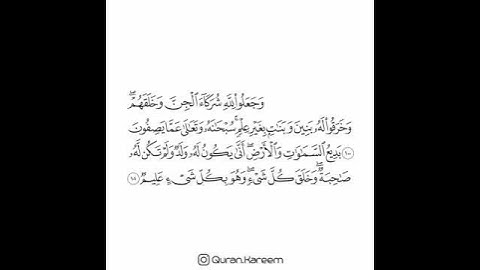 وَجَعَلُوا۟ لِلَّهِ شُرَكَآءَ ٱلْجِنَّ وَخَلَقَهُمْ ۖ
وَخَرَقُوا۟ لَهُۥ بَنِينَ وَبَنَٰتٍۭ بِغَيْرِ عِلْمٍ ۚ سُبْحَٰنَهُۥ وَتَعَٰلَىٰ عَمَّا يَصِفُونَ
١٠٠ بَدِيعُ ٱلسَّمَٰوَٰتِ وَٱلْأَرْضِ ۖ أَنَّىٰ يَكُونُ لَهُۥ وَلَدٌ وَلَمْ تَكُن لَّهُۥ
صَٰحِبَةٌ ۖ وَخَلَقَ كُلَّ شَىْءٍ ۖ وَهُوَ بِكُلِّ شَىْءٍ عَلِيمٌ
Quran.Kareem